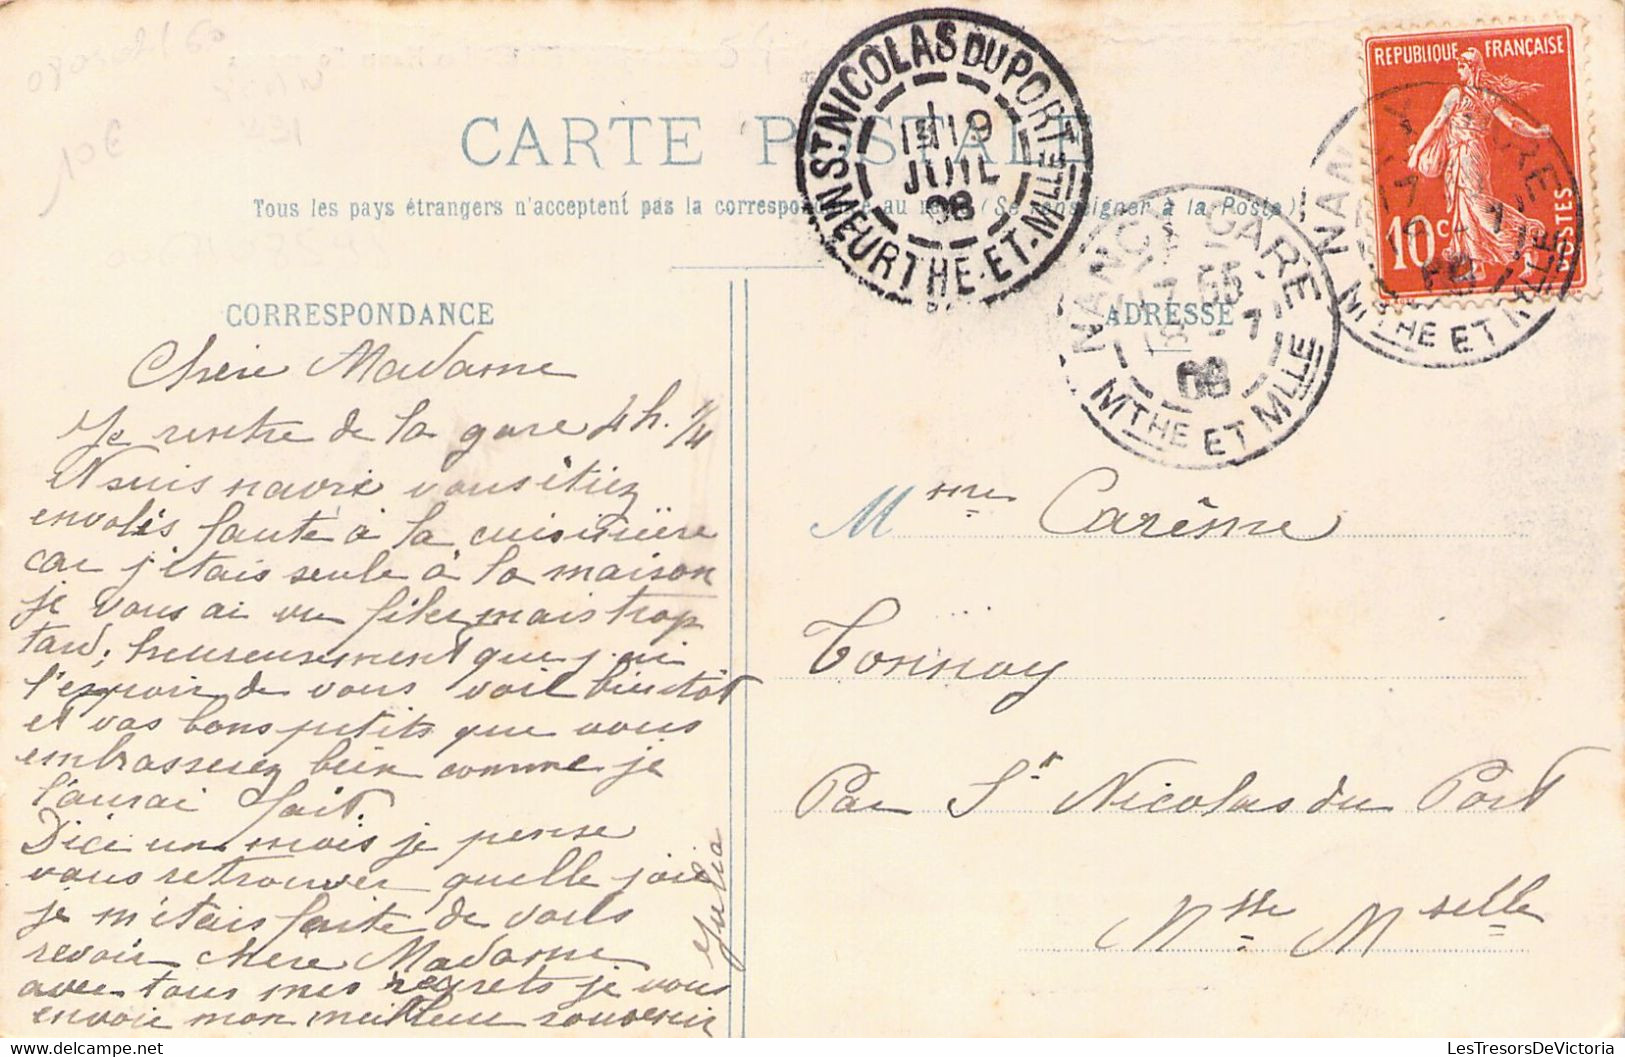 10€
CARTE POSTALE
Tous les pays étrangers n'acceptent pas la correspondance au recto (Se renseigner à la Poste)
ST NICOLAS DU PORT
19
JUIL
08
MEURTHE-ET-MLLE
NANCY GARE
17 55
18 - 7
08
MTHE ET MLLE
REPUBLIQUE FRANÇAISE
10c
POSTES
NANCY GARE
MTHE ET MLLE
CORRESPONDANCE
ADRESSE
Chère Madame
Je rentre de la gare 4 h. 1/4
Nsuis navré vous étiez
envolés faute à la cuisinière
car j'étais seule à la maison
je vous ai vu filer mais trop
tard, heureusement que j'ai
l'espoir de vous voir bientôt
et vos bons petits que vous
embrasserez bien comme je
l'aurai fait.
D'ici un mois je pense
vous retrouver quelle joie
je m'étais faite de vous
revoir chère Madame
avec tous mes regrets je vous
envoie mon meilleur souvenir
Julia
Mme Carême
Tonnoy
Par St Nicolas du Port
Mselle
LesTresorsDeVictoria